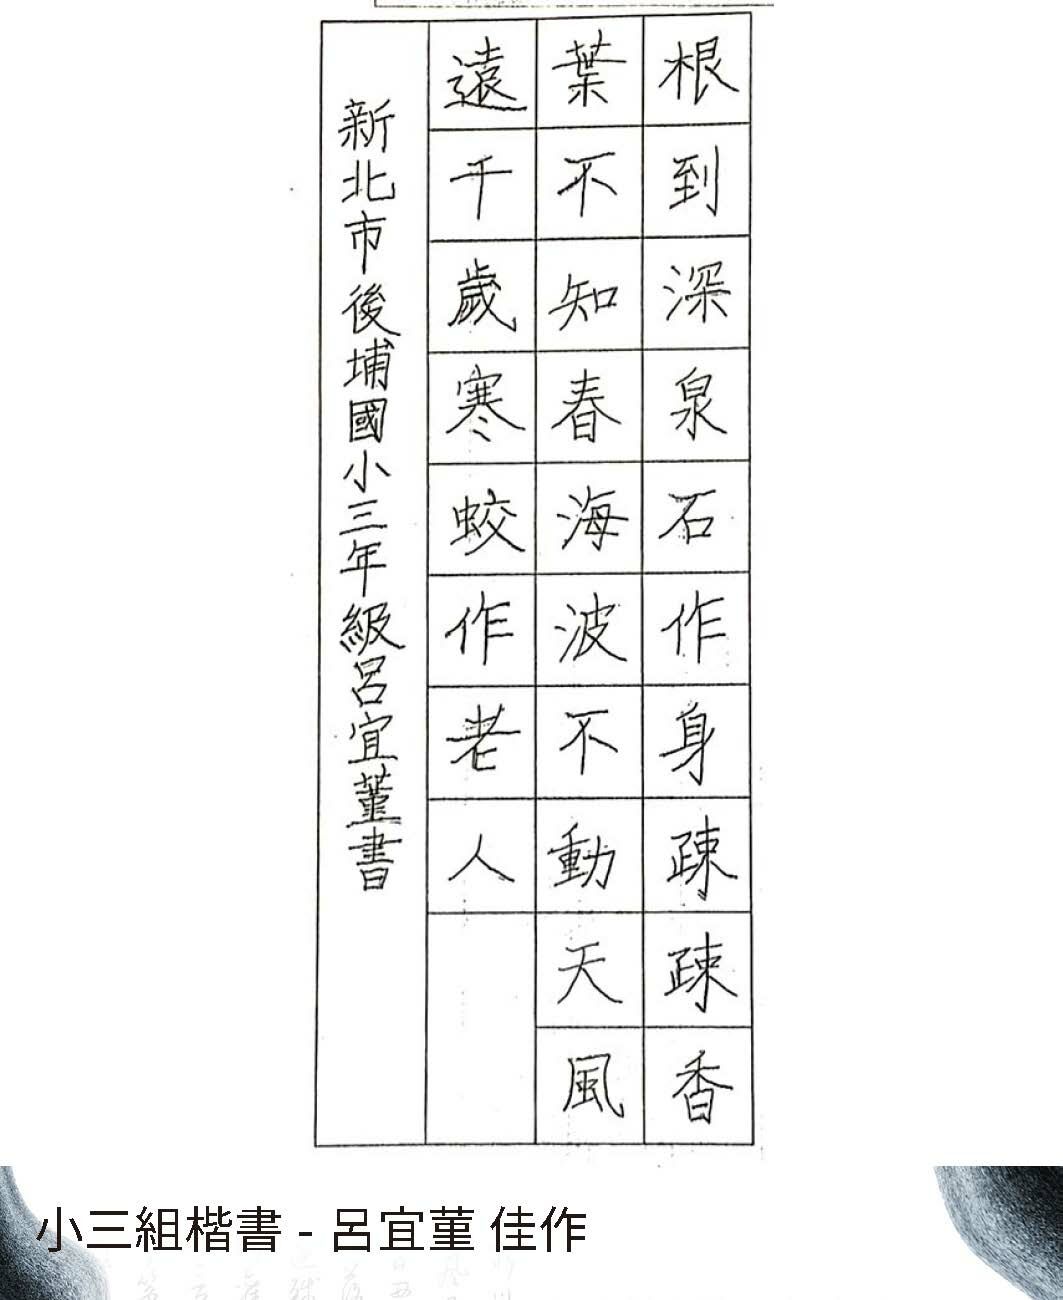 根到深泉石作身疎疎香
葉不知春海波不動天風
遠千歲寒蛟作老人
新北市後埔國小三年級呂宜蓳書
小三組楷書 - 呂宜蓳 佳作